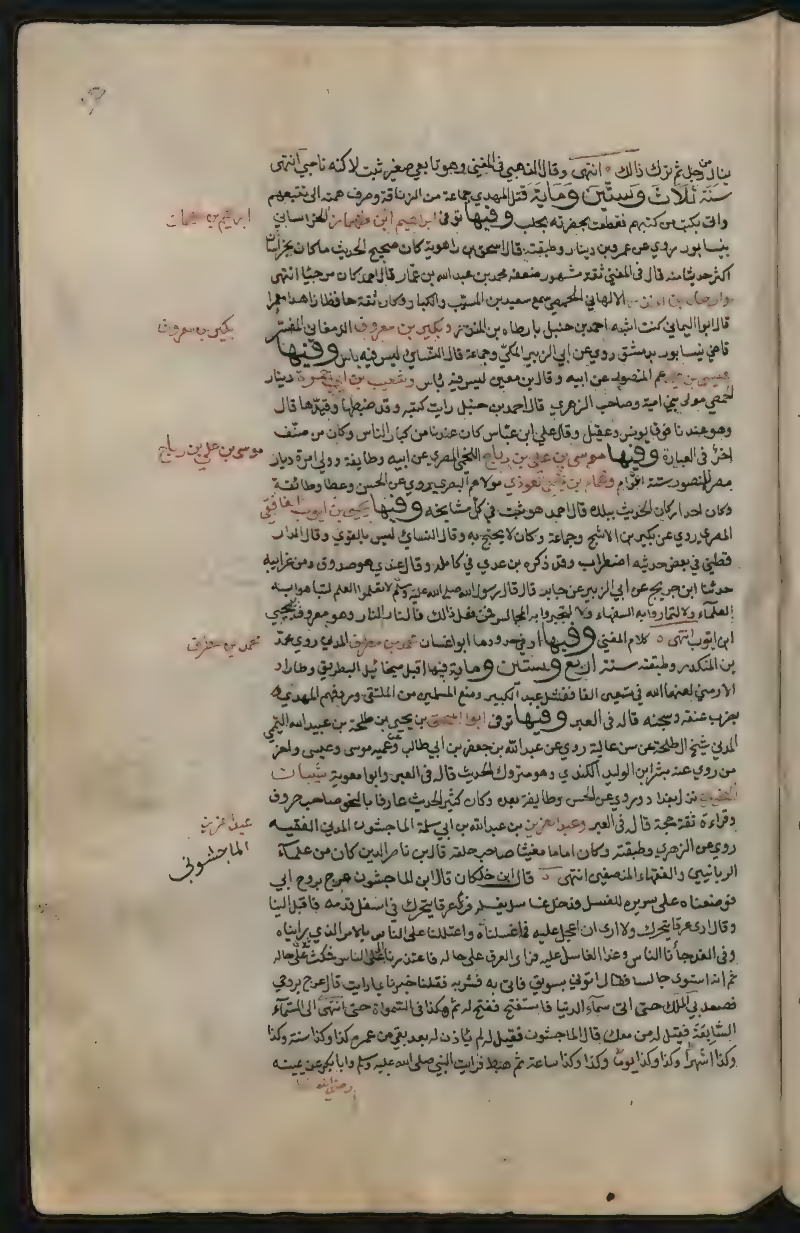 ينال من رجل ثم ترك ذالك انتهى وقال الذهبي في المغني وهو تابعي صغير ثبت لاكنه ناصبي انتهى
سنة ثلاث وستين وماية قتل المهدي جماعة من الزناقة وصرف همته الى تتبعهم
واتى بكتب من كتبهم فقطعت بحضرته بحلب وفيها توفى ابراهيم ابن طهمان الخراساني
ابراهيم بن طهمان
بنيسابور روي عن عمرو بن دينار وطبقته قال اسحق بن راهوية كان صحيح الحديث ماكان بخراسان
اكثر حديثا منه قال في المغني ثقة مشهور ضعفه محمد بن عبد الله بن عمار قال احمد كان مرجيا انتهى
وارطاه بن المنذر الالهاني الحمصي سمع سعيد بن المسيب والكبار وكان ثقة حافظا زاهدا معمرا
قال ابوا اليماني كنت اشبه احمد بن حنبل بارطاه بن المنذر وبكير بن معروف الدمغاني المفسر
بكير بن معروف
قاضي نيسابور بدمشق روي عن ابي الزبير المكي وجماعة قال النساي ليس فيه باس وفيها
عيسى بن علي عم المنصور عن ابيه وقال بن معين ليس فيه باس وشعيب بن ابي حمزة دينار
الحمصي مولى بني امية وصاحب الزهري قال احمد بن حنبل رايت كتبه وقد ضبطها وقيدها قال
وهو عندنا فوق يونس وعقيل وقال علي ابن عياس كان عندنا من كبار الناس وكان من صنف
اخر في العبارة وفيها موسى بن علي بن رباح اللخمي المصري عن ابيه وطايفة وولي امرة ديار
موسى بن علي بن رباح
مصر للمنصور ستة اعوام وهمام بن يحيى العوذي مولاهم البصري يروي عن الحسن وعطا وطائفة
وكان احد اركان الحديث ببلده قال احمد هو ثبت في كل مشايخه وفيها يحيى بن ايوب الغافقي
المصري روي عن بكير بن الاشج وجماعة وكان لا يحتج به وقال النسائ ليس بالقوي وقال الدار
قطني في بعض حديثه اضطراب وقد ذكره بن عدي في كامله وقال عندي هو صدوق ومن غرايبه
حدثنا ابن جريج عن ابي الزبير عن جابر قال قال رسول الله صلى الله عليه وسلم لا تعلموا العلم لتباهوا به
العلماء ولا لتماروا به السفهاء ولا لتخيروا به المجالس فمن فعل ذالك فالنار النار وهو معروف ليحيى
ابن ايوب انتهى كلام المغني وفيها او في حدودها ابو اغسان محمد بن مطرف المدني روي عن محمد
محمد بن مطرف
بن المنكدر وطبقته سنة اربع وستين وماية فيها اقبل ميخائيل البطريق وطازاد
الارمني لعنهما الله في تسعين الفا ففشل عبد الكبير ومنع المسلمين من الملتقى ورد فهم المهدي
بضرب عنقه وسجنه قاله في العبر وفيها توفى ابوا اسحق بن يحيى بن طلحة بن عبيد الله التيمي
المدني شيخ ال طلحة عن سن عالية روي عن عبد الله بن جعفر بن ابي طالب وعميه موسى وعيسى واخر
من روي عنه بشر ابن الوليد الكندي وهو متروك الحديث قاله في العبر وابوا معوية شيبان
النحوي نزل بغداد وروي عن الحسن وطايفة بعده وكان كثير الحديث عارفا بالنحو صاحب حروف
وقراءة ثقة حجة قال في العبر وعبد العزيز بن عبد الله بن ابي سلمة الماجشون المدني الفقيه
عبد العزيز
الماجشوني
روي عن الزهري وطبقته وكان اماما مفتيا صاحب حلقة قال بن ناصر الدين كان من علماء
الربانيين والفقهاء المنصفين انتهى قال ابن خلكان قال ابن الماجشون عرج بروح ابي
فوضعناه على سريره للغسل فدخل غاسل فراي عرقا يتحرك في اسفل قدمه فاقبل الينا
وقال ارى عرقا يتحرك ولا ارى ان اعجل عليه فاعتللنا على الناس بالامر الذي رايناه
وفي الغد جأنا الناس وغدا الغاسل عليه فراى العرق على حاله فاعتذرنا الى الناس فمكث ثلاثا على حاله
ثم انه استوى جالسا فقال اتوني بسويق فاتى به فشربه فقلنا خبرنا ما رايت قال عرج بروحي
فصعد بي الملك حتى اتى سماء الدنيا فاستفتح ففتح له ثم هكذا في السمواة حتى انتهى الى السماء
السابعة فقيل له من معك قال الماجشون فقيل له لم ياذن له بعد بقي من عمره كذا وكذا سنة وكذا
وكذا اشهرا وكذا وكذا يوما وكذا وكذا ساعة ثم هبط فرايت النبي صلى الله عليه وسلم وابا بكر عن يمينه